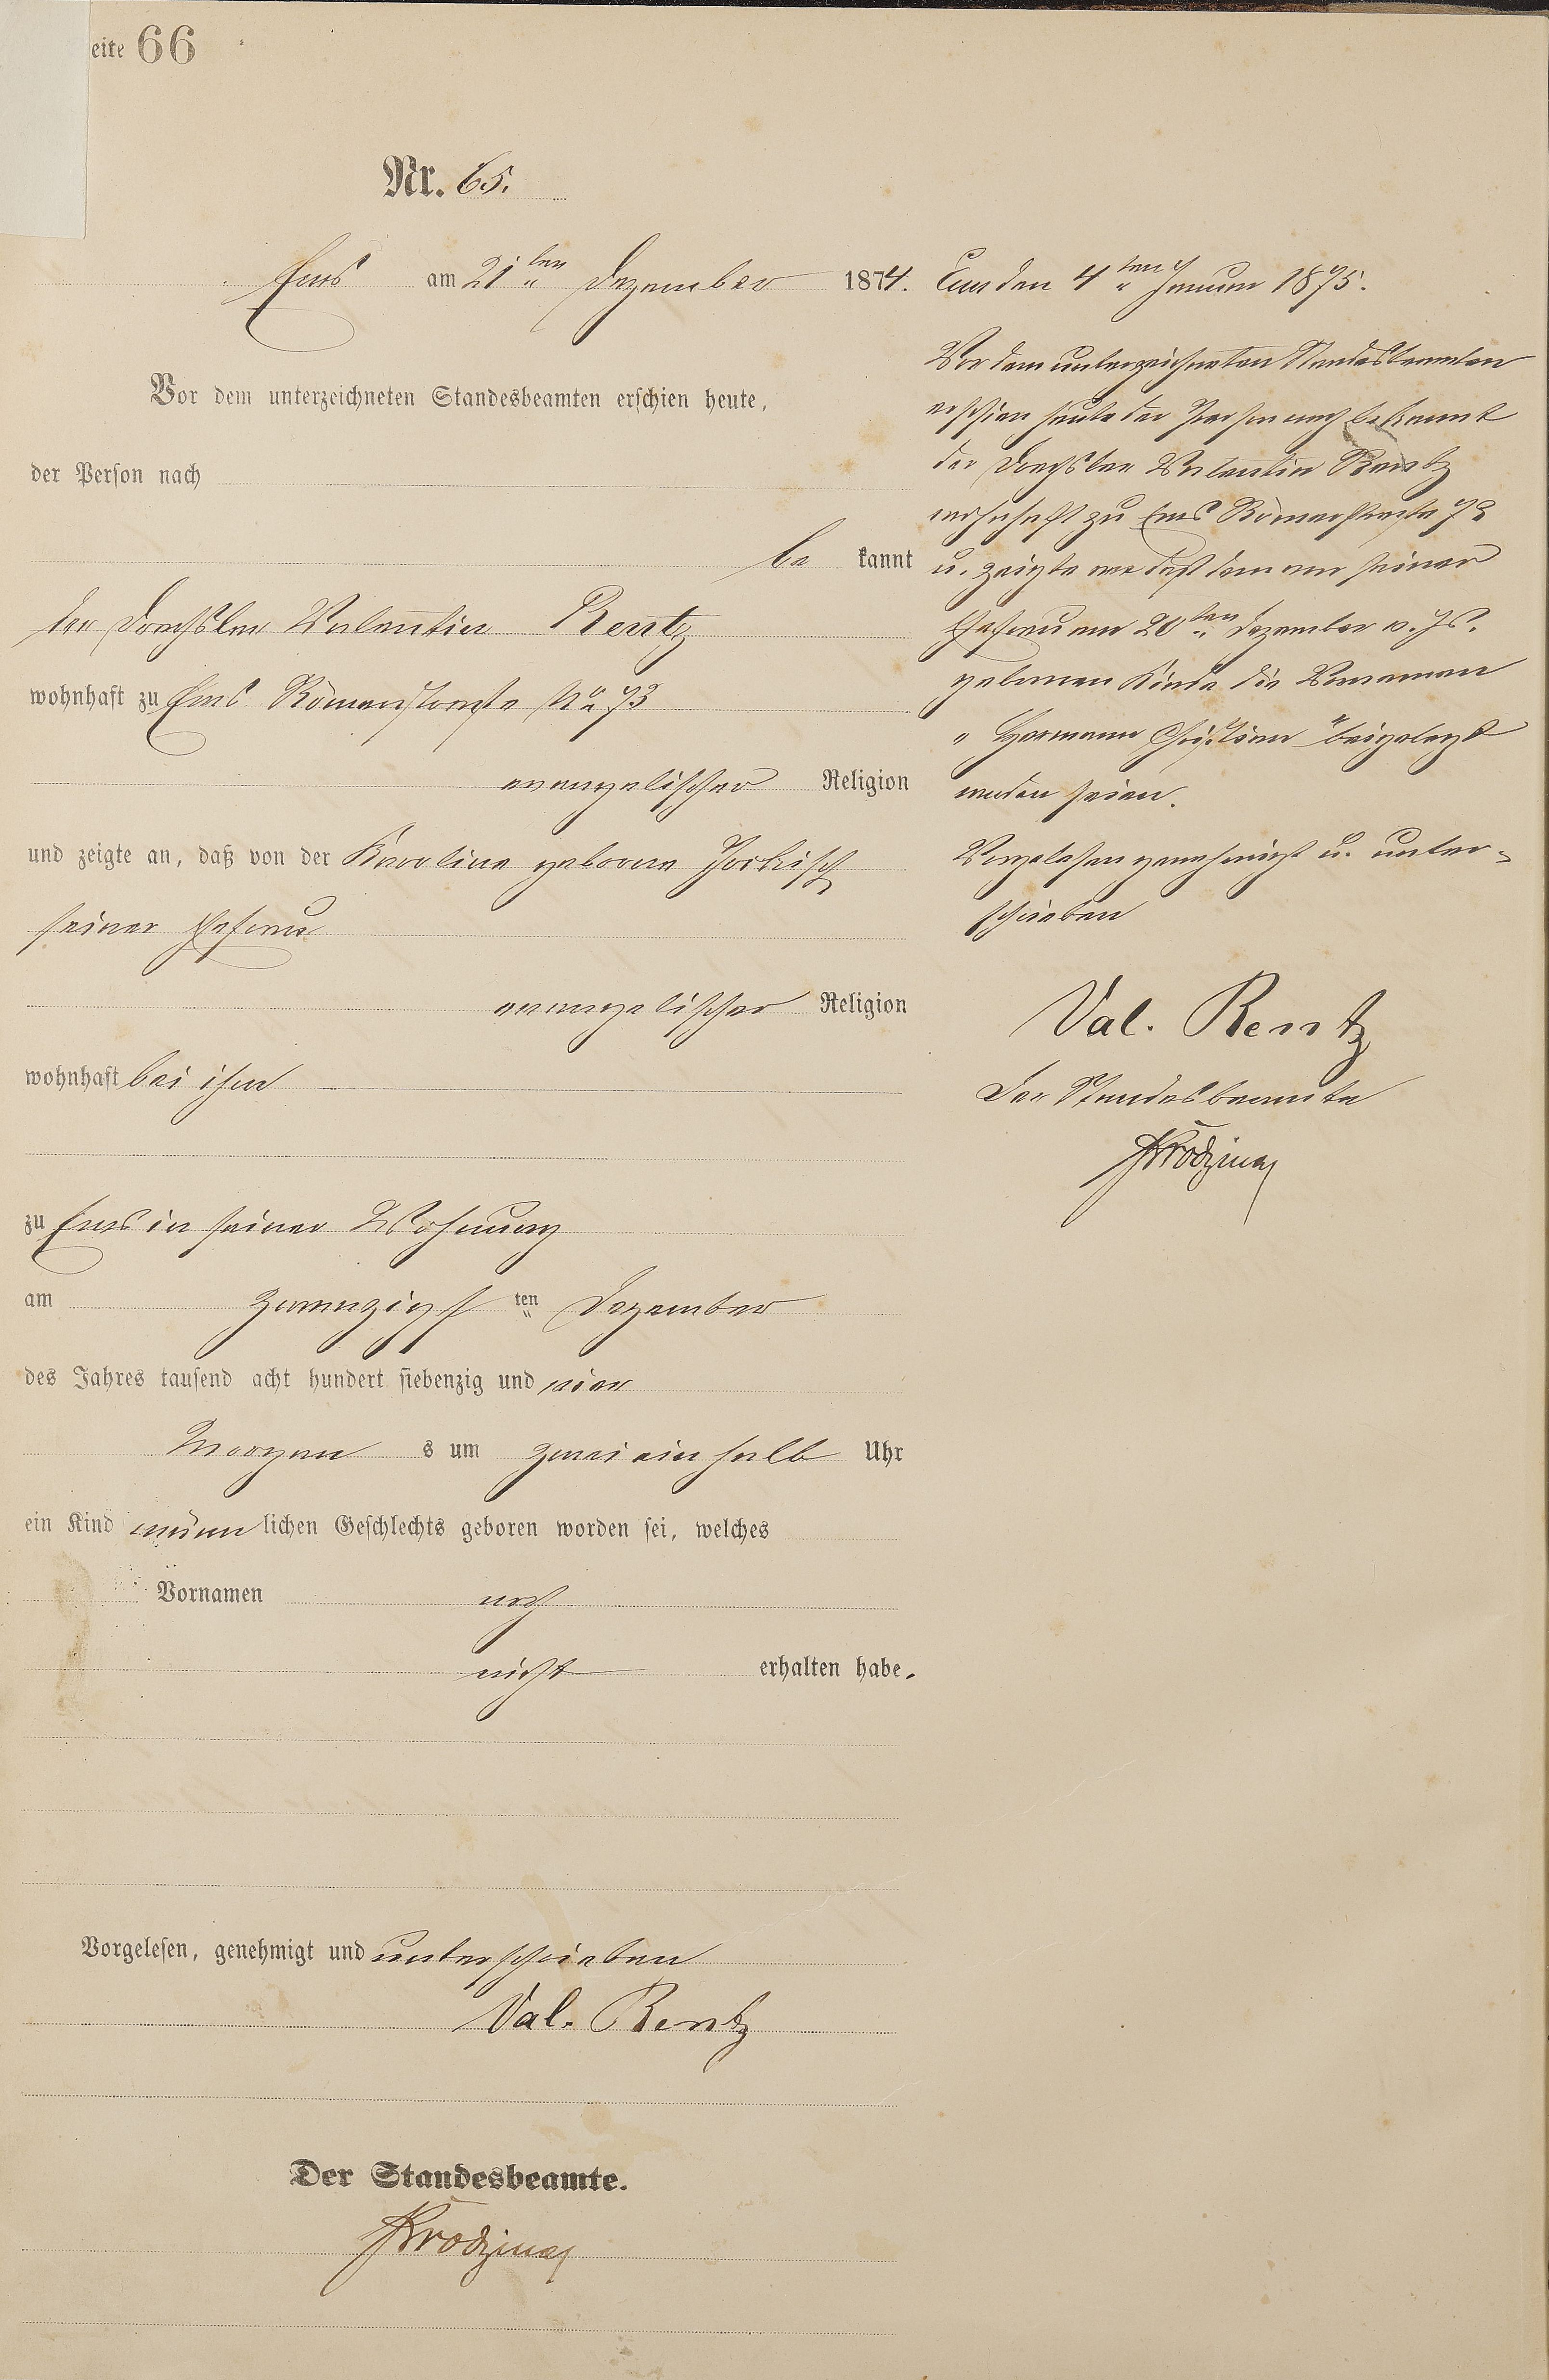 eite 66
Nr. 65.
Ems am 21ten Dezember 1874.
Vor dem unterzeichneten Standesbeamten erschien heute,
der Person nach
be kannt
der Drechsler Valentin Rentz
wohnhaft zu Ems Römerstraße No 73
evangelischer Religion
und zeigte an, daß von der Karoline geborene
seiner Ehefrau
evangelischer Religion
wohnhaft bei ihm
zu Ems in seiner Wohnung
am zwanzigsten Dezember
des Jahres tausend acht hundert siebenzig und vier
Morgens um zwei ein halb Uhr
ein Kind männlichen Geschlechts geboren worden sei, welches
Vornamen noch
nicht erhalten habe.
Vorgelesen, genehmigt und unterschrieben
Val. Rentz
Der Standesbeamte.
Ems den 4ten Januar 1875.
Vor dem unterzeichneten Standesbeamten
erschien heute der Person nach bekannt
der Drechsler Valentin Rentz
wohnhaft zu Ems Römerstraße 73
u. zeigte an daß dem von seiner
Ehefrau am 20ten Dezember v. Js.
geborenen Kinde die Vornamen
"Hermann Christian" beigelegt
worden seien.
Vorgelesen genehmigt u. unter-
schrieben
Val. Rentz
Der Standesbeamte